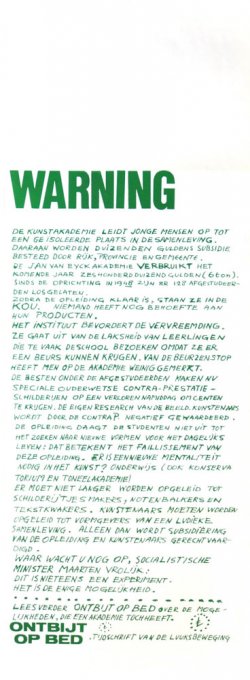 WARNING
DE KUNSTAKADEMIE LEIDT JONGE MENSEN OP TOT
EEN GEISOLEERDE PLAATS IN DE SAMENLEVING.
DAARAAN WORDEN DUIZENDEN GULDENS SUBSIDIE
BESTEED DOOR RIJK, PROVINCIE EN GEMEENTE.
DE JAN VAN EYCK AKADEMIE VERBRUIKT HET
KOMENDE JAAR ZESHONDERDDUIZEND GULDEN (6 ton).
SINDS DE OPRICHTING IN 1948 ZIJN ER 128 AFGESTUDEER-
DEN LOSGELATEN.
ZODRA DE OPLEIDING KLAAR IS, STAAN ZE IN DE
KOU. NIEMAND HEEFT NOG BEHOEFTE AAN
HUN PRODUCTEN.
HET INSTITUUT BEVORDERT DE VERVREEMDING.
ZE GAAT UIT VAN DE LAKSHEID VAN LEERLINGEN
DIE TE VAAK DE SCHOOL BEZOEKEN OMDAT ZE ER
EEN BEURS KUNNEN KRIJGEN. VAN DE BEURZENSTOP
HEEFT MEN OP DE AKADEMIE WEINIG GEMERKT.
DE BESTEN ONDER DE AFGESTUDEERDEN MAKEN NU
SPECIALE OUDERWETSE CONTRA-PRESTATIE-
SCHILDERIJEN OP EEN VERLOREN NAMIDDAG OM CENTEN
TE KRIJGEN. DE EIGEN RESEARCH VAN DE BEELD. KUNSTENAARS
WORDT DOOR DE CONTRAP. NEGATIEF GEWAARDEERD.
DE OPLEIDING DAAGT DE STUDENTEN NIET UIT TOT
HET ZOEKEN NAAR NIEUWE VORMEN VOOR HET DAGELIJKS
LEVEN: DAT BETEKENT HET FAILLISSEMENT VAN
DEZE OPLEIDING. ER IS EEN NIEUWE MENTALITEIT
NODIG IN HET KUNST? ONDERWIJS (OOK KONSERVA
TORIUM EN TONEELAKADEMIE)
ER MOET NIET LANGER WORDEN OPGELEID TOT
SCHILDERIJTJESMAKERS, NOTENBALKERS EN
TEKSTKWAKERS. KUNSTENAARS MOETEN WORDEN
OPGELEID TOT VORMGEVERS VAN EEN LUDIEKE
SAMENLEVING. ALLEEN DAN WORDT SUBSIDIERING
VAN DE OPLEIDING EN KUNSTENAARS GERECHTVAAR-
DIGD.
WAAR WACHT U NOG OP, SOCIALISTISCHE
MINISTER MAARTEN VROLIJK:
DIT IS NIET EENS EEN EXPERIMENT.
HET IS DE ENIGE MOGELIJKHEID.
LEES VERDER ONTBIJT OP BED OVER DE MOGE-
LIJKHEDEN, DIE EEN AKADEMIE TOCH HEEFT.
ONTBIJT
OP BED. TIJDSCHRIFT VAN DE LUUKSBEWEGING